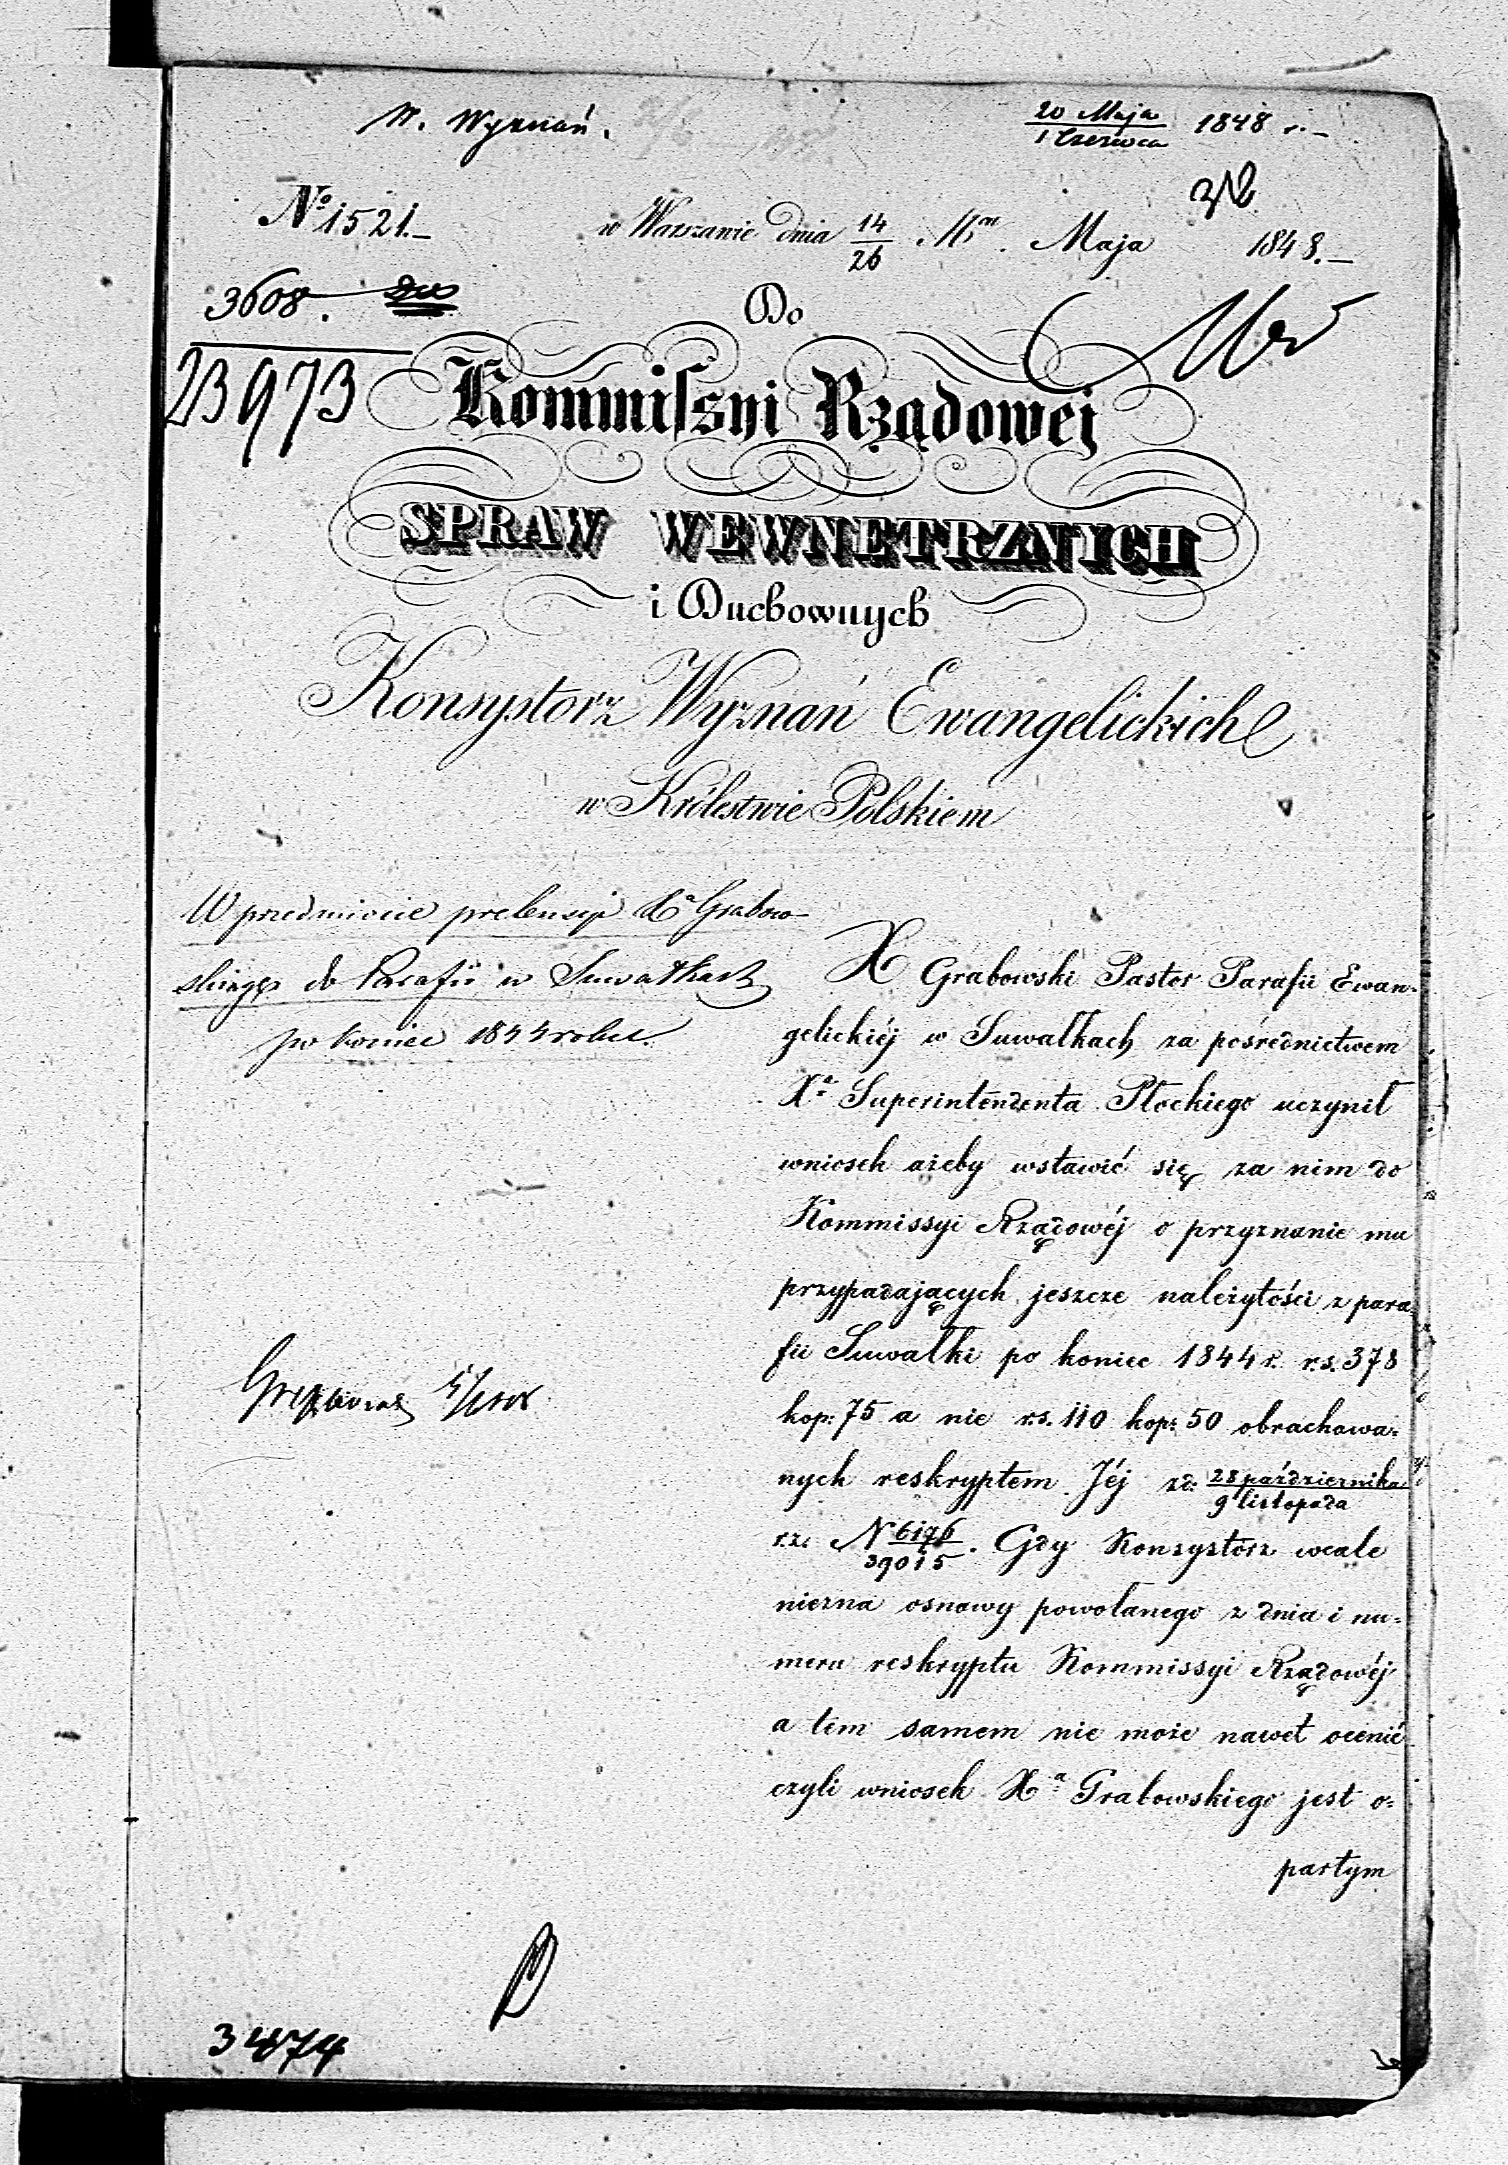 W. Wyznań.
20 Maja
1 Czerwca 1848 r. –
No 1521. –
w Warszawie dnia 14/26 Mca. Maja 1848. –
3608.
23973
Do
Kommiſsyi Rządowej
SPRAW WEWNĘTRZNYCH
i Duchownych
Konsystorz Wyznań Ewangelickich
w Królestwie Polskiem
W przedmiocie pretensyi Xa Grabow-
skiego do Parafii w Suwałkach
po koniec 1844 roku.
X Grabowski Pastor Parafii Ewan-
gelickiéj w Suwałkach za pośrednictwem
Xa Superintendenta Płockiego uczynił
wniosek ażeby wstawić się za nim do
Kommissyi Rządowéj o przyznanie mu
przypadających jeszcze należytości z para-
fii Suwałki po koniec 1844 r. rs. 378
kop: 75 a nie rs. 110 kop: 50 obrachowa-
nych reskryptem Jéj zd: 28 października
9 listopada
r.z. N 6176/39015. Gdy Konsystorz wcale
niezna osnowy powołanego z dnia i nu-
meru reskryptu Kommissyi Rządowéj
a tem samem nie może nawet ocenić
czyli wniosek Xa Grabowskiego jest o-
partym
3474